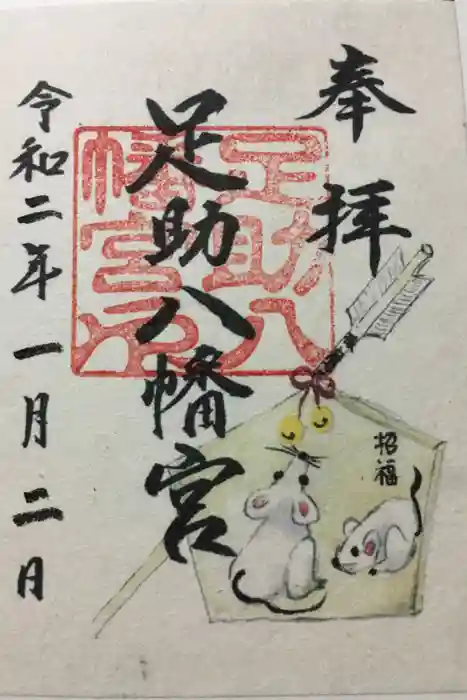 奉拝
足助八幡宮
足助八
幡宮印
招福
令和二年一月二日